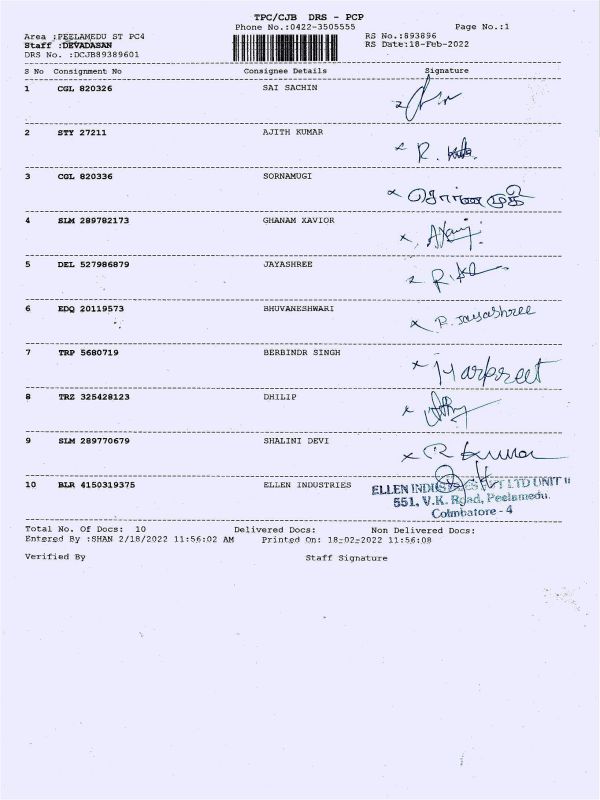 TPC/CJB DRS - PCP
Phone No.:0422-3505555 Page No.:1
Area :PEELAMEDU ST PC4 RS No.:893896
Staff :DEVADASAN RS Date:18-Feb-2022
DRS No. :DCJB89389601
S No Consignment No Consignee Details Signature
1 CGL 820326 SAI SACHIN
2 STY 27211 AJITH KUMAR
x R.
3 CGL 820336 SORNAMUGI
x சொர்ணமுகி
4 SLM 289782173 GHANAM XAVIOR
5 DEL 527986879 JAYASHREE
6 EDQ 20119573 BHUVANESHWARI
x R. Jayashree
7 TRP 5680719 BERBINDR SINGH
x Harpreet
8 TRZ 325428123 DHILIP
9 SLM 289770679 SHALINI DEVI
x R kumar
10 BLR 4150319375 ELLEN INDUSTRIES
ELLEN INDUSTRIES PVT LTD UNIT II
551, V.K. Road, Peelamedu.
Coimbatore - 4
Total No. Of Docs: 10 Delivered Docs: Non Delivered Docs:
Entered By :SHAN 2/18/2022 11:56:02 AM Printed On: 18-02-2022 11:56:08
Verified By Staff Signature